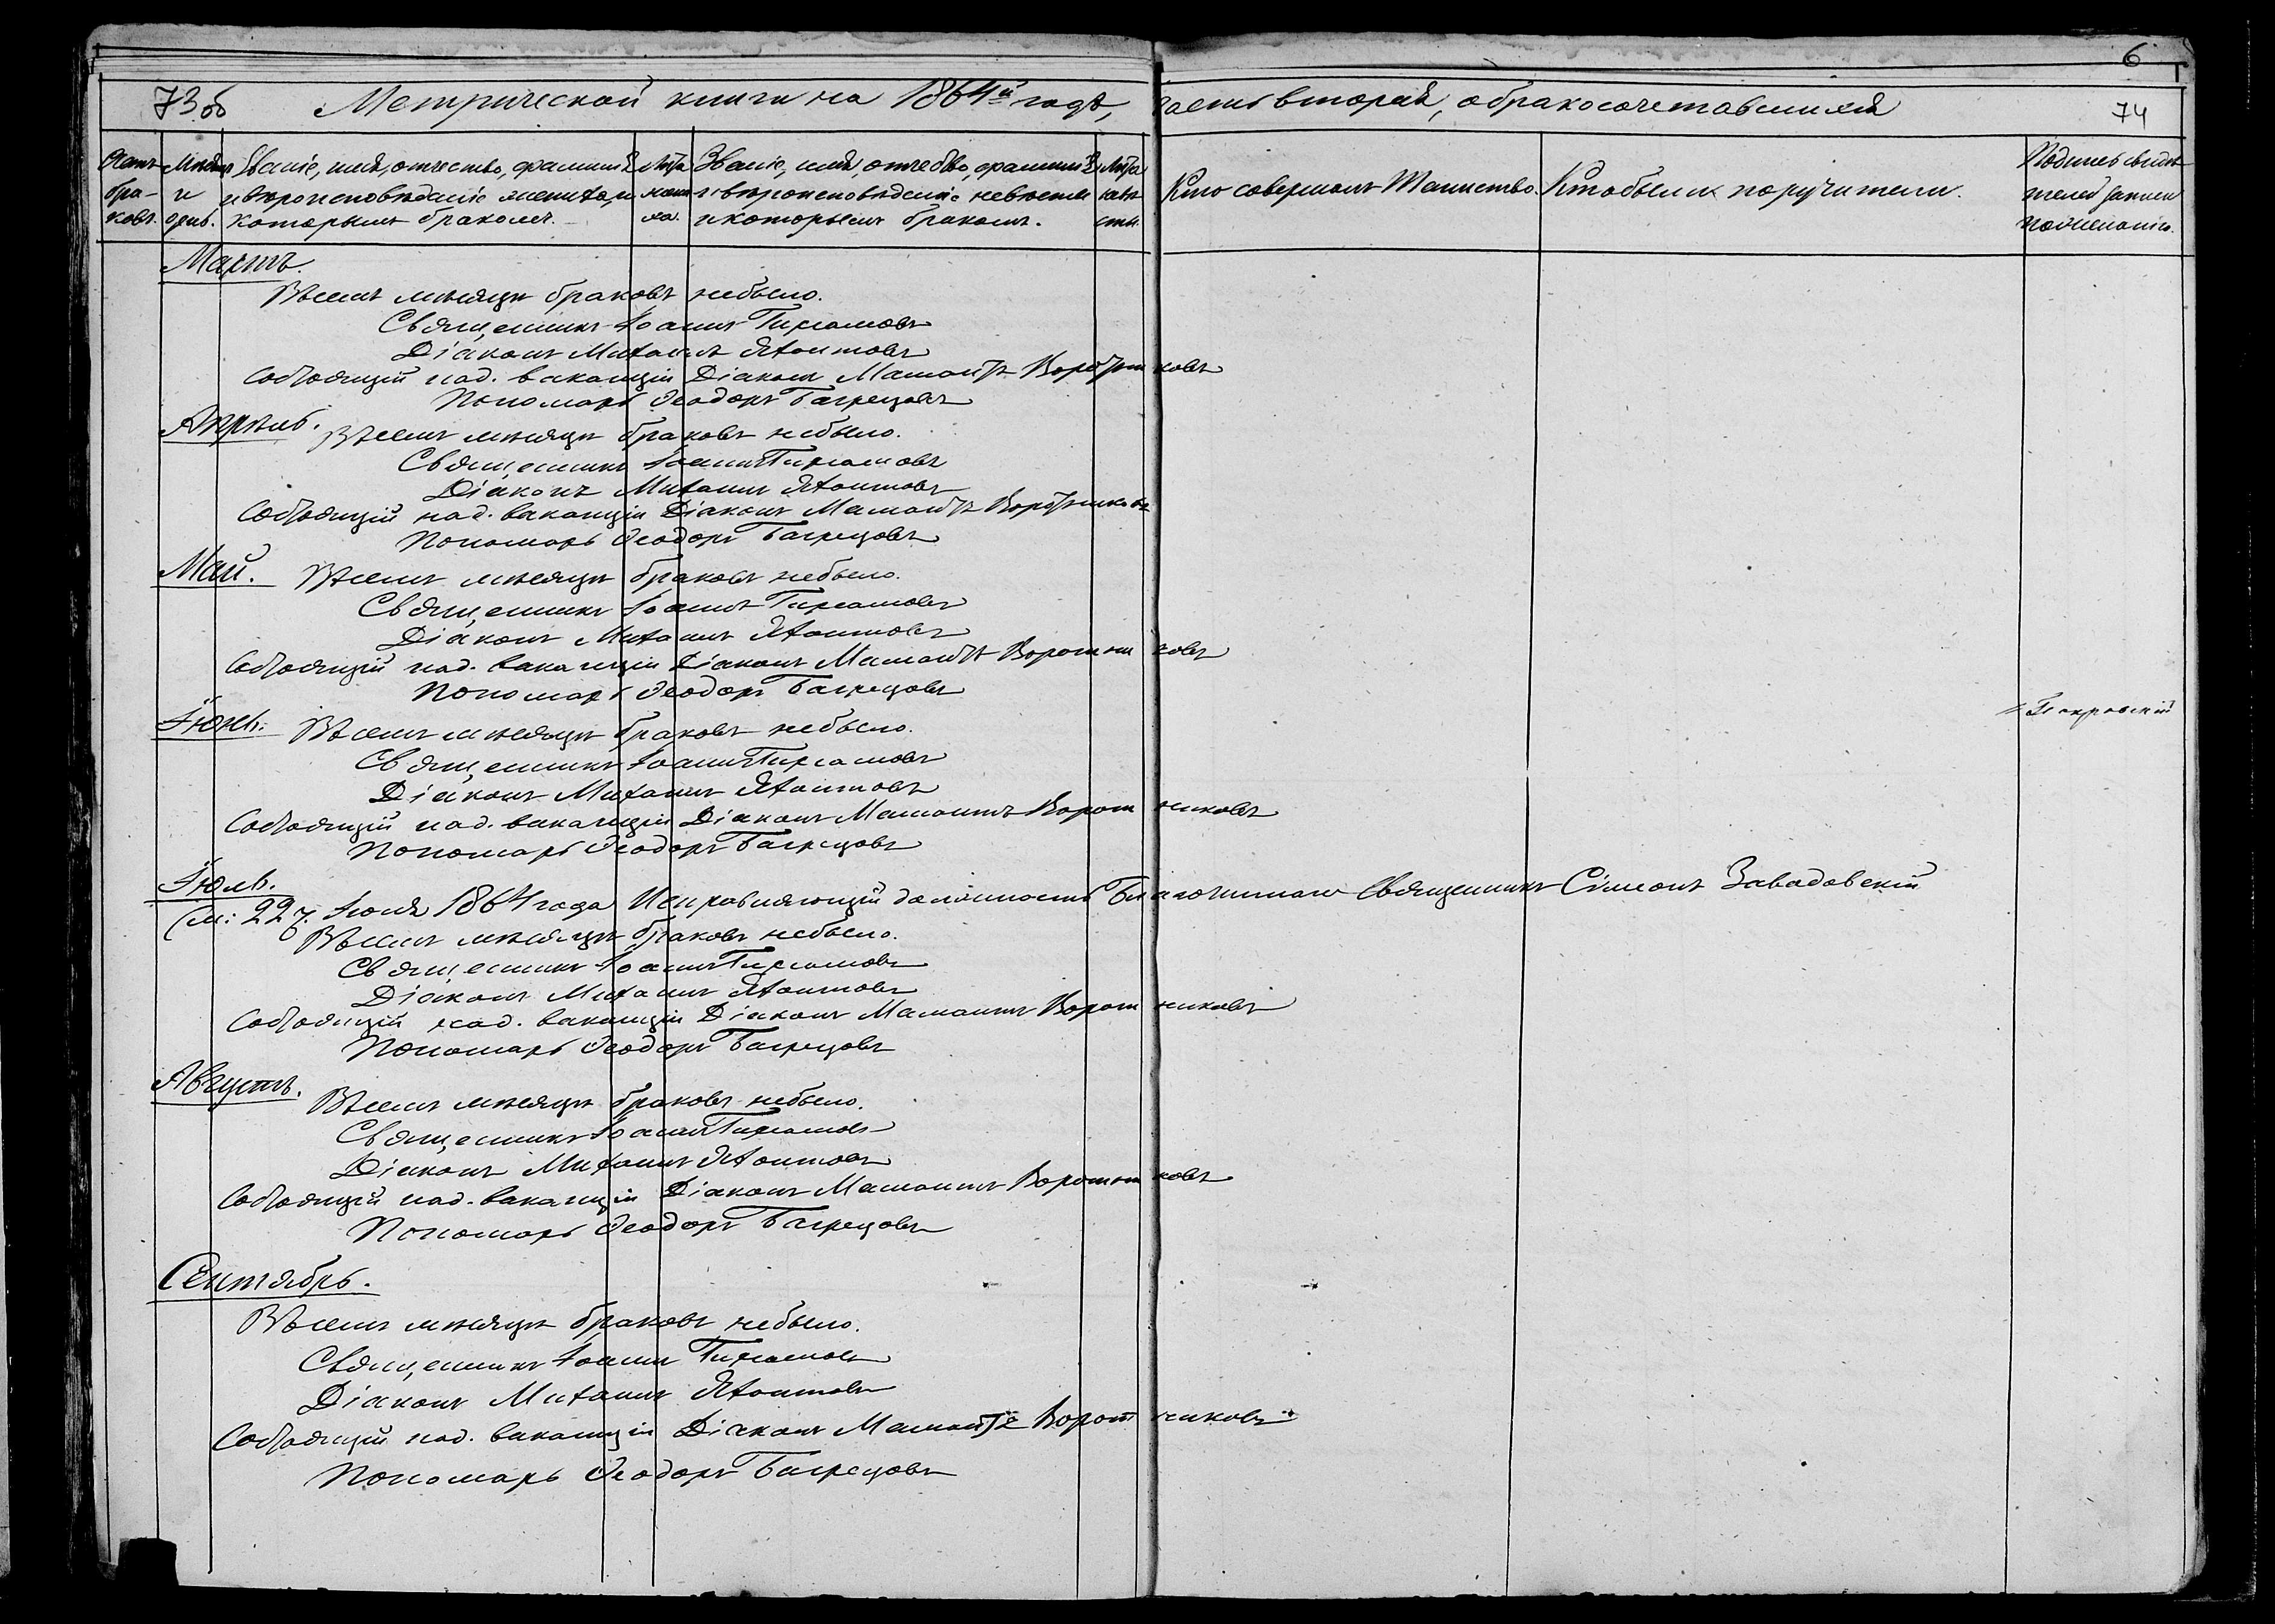 6
73 об Метрической книги на 1864й годъ, часть вторая, о бракосочетавшихся 74
Счетъ бра-ковъ. Мѣсяцъ и день. Званіе, имя, отчество, фамилія и вѣроисповѣданіе жениха, и которымъ бракомъ. Лѣта жениха. Званіе, имя, отчество, фамилія и вѣроисповѣданіе невѣсты и которымъ бракомъ. Лѣта невѣсты. Кто совершалъ Таинство. Кто были поручители. Подпись свидѣтелей записи по желанію.
Мартъ.
Въ семъ мѣсяцѣ браковъ небыло.
Священникъ Іоаннъ
Діаконъ Михаилъ
Состоящій на д. вакансіи Діаконъ Мамонтъ Воротниковъ
Пономарь Ѳеодоръ Багрецовъ
Апрѣль.
Въ семъ мѣсяцѣ браковъ небыло.
Священникъ Іоаннъ
Діаконъ Михаилъ
Состоящій на д. вакансіи Діаконъ Мамонтъ Воротниковъ
Пономарь Ѳеодоръ Багрецовъ
Май.
Въ семъ мѣсяцѣ браковъ небыло.
Священникъ Іоаннъ
Діаконъ Михаилъ
Состоящій на д. вакансіи Діаконъ Мамонтъ Воротниковъ
Пономарь Ѳеодоръ Багрецовъ
Покровскій
Іюнь.
Въ семъ мѣсяцѣ браковъ небыло.
Священникъ Іоаннъ
Діаконъ Михаилъ
Состоящій на д. вакансіи Діаконъ Мамонтъ Воротниковъ
Пономарь Ѳеодоръ Багрецовъ
Іюль.
22 Іюля 1864 года Исправляющій должность Благочиннаго Священникъ Сімеонъ Завадовскій
Въ семъ мѣсяцѣ браковъ небыло.
Священникъ Іоаннъ
Діаконъ Михаилъ
Состоящій на д. вакансіи Діаконъ Мамонтъ Воротниковъ
Пономарь Ѳеодоръ Багрецовъ
Августъ.
Въ семъ мѣсяцѣ браковъ небыло.
Священникъ Іоаннъ
Діаконъ Михаилъ
Состоящій на д. вакансіи Діаконъ Мамонтъ Воротниковъ
Пономарь Ѳеодоръ Багрецовъ
Сентябрь.
Въ семъ мѣсяцѣ браковъ небыло.
Священникъ Іоаннъ
Діаконъ Михаилъ
Состоящій на д. вакансіи Діаконъ Мамонтъ Воротниковъ
Пономарь Ѳеодоръ Багрецовъ